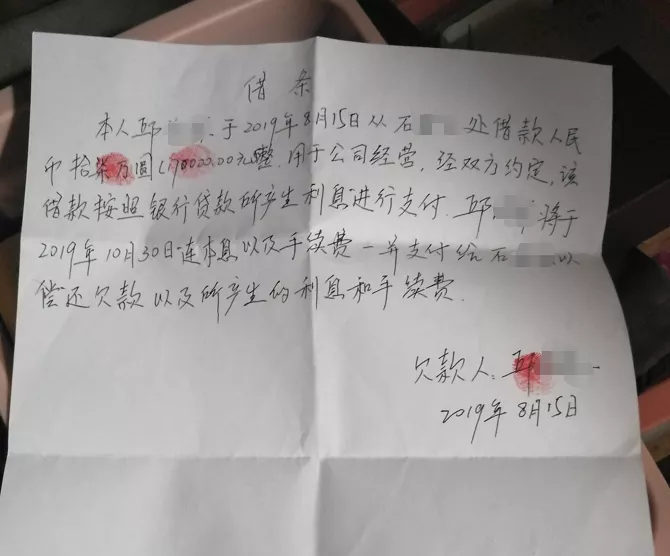 借条
本人邱于2019年8月15日从石处借款人民
币拾柒万圆(170000.00元整,用于公司经营,经双方约定,该
借款按照银行贷款所产生利息进行支付.邱将于
2019年10月30日连本息以及手续费一并支付给石以
偿还欠款以及所产生的利息和手续费.
欠款人:邱
2019年8月15日